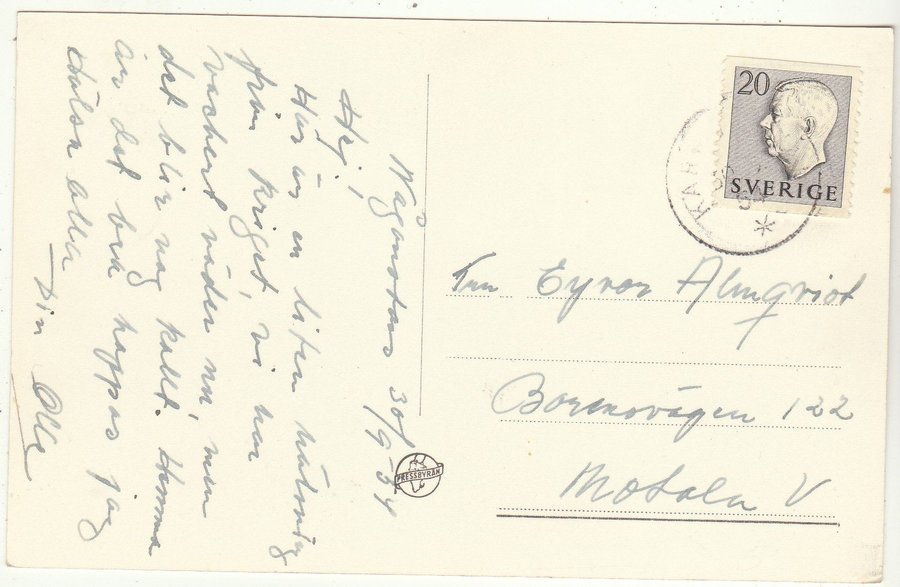 30/9-54
Hej!
Här är en liten hälsning
från kriget, vi har
vackert väder nu, men
det blir nog kallt. Hemma
är det bra hoppas jag
Hälsa alla
Din Olle
20
SVERIGE
KAR
PRESSBYRÅN
Fru Eyvor Almqvist
Borensvägen 122
Motala V